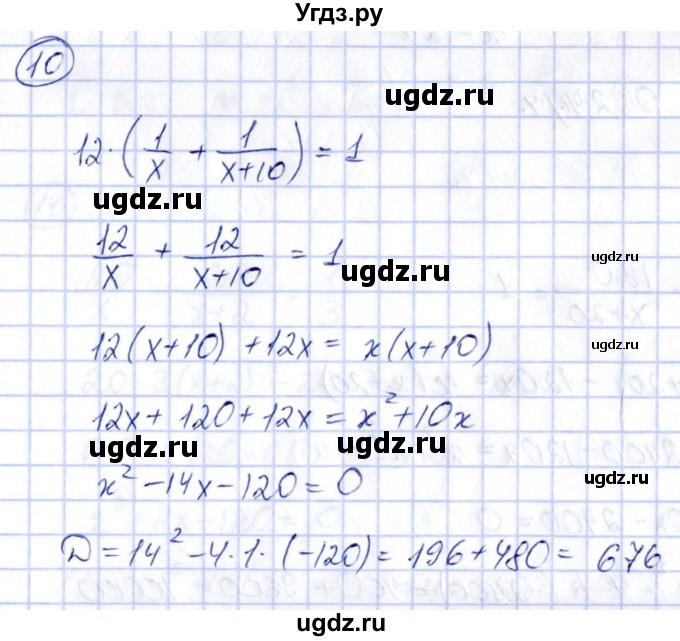 Угдз.ру
10
ugdz.ru
12·(1/x + 1/(x+10)) = 1
ugdz.ru
12/x + 12/(x+10) = 1
ugdz.ru
ugdz.ru
12(x+10) + 12x = x(x+10)
ugdz.ru
12x + 120 + 12x = x² + 10x
ugdz.ru
ugdz.ru
x² - 14x - 120 = 0
ugdz.ru
D = 14² - 4·1·(-120) = 196 + 480 = 676
ugdz.ru
ugdz.ru